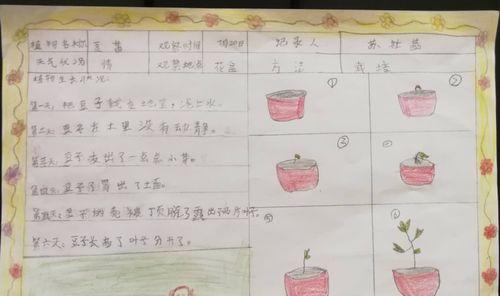 植物名称 豆苗 观察时间 记录人 苏
天气状况 晴 观察地点 花盆 方法 栽培
植物生长状况:
第一天,把豆子种在地里,浇上水。
第二天,豆子在土里没有动静。
第三天,豆子发出了一点点小芽。
第四天,豆子冒出了土面。
第五天,豆子的壳被顶破了露出两片叶。
第六天,豆子长高了叶子分开了。
①
②
③
⑤